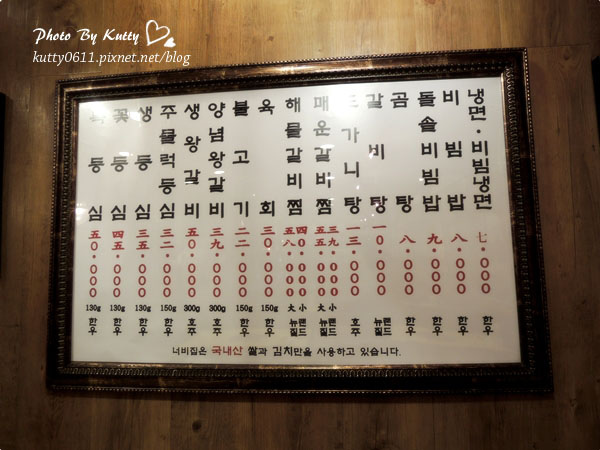 Photo By Kutty
kutty0611.pixnet.net/blog
냉면·비빔냉면 七·000 한우
비빔밥 八·000 한우
돌솥비빔밥 九·000 한우
곰탕 八·000 한우
갈비탕 一0·000 뉴질랜드
도가니탕 一三·000 호주
매운갈비찜 小 三九·000 大 五五·000 뉴질랜드
해물갈비찜 小 四0·000 大 五八·000 뉴질랜드
육회 三0·000 150g 한우
불고기 二二·000 150g 한우
양념왕갈비 三九·000 300g 호주
생왕갈비 五0·000 300g 호주
주물럭등심 三二·000 150g 한우
생등심 三五·000 130g 한우
꽃등심 四五·000 130g 한우
등심 五0·000 130g 한우
너비집은 국내산 쌀과 김치만을 사용하고 있습니다.